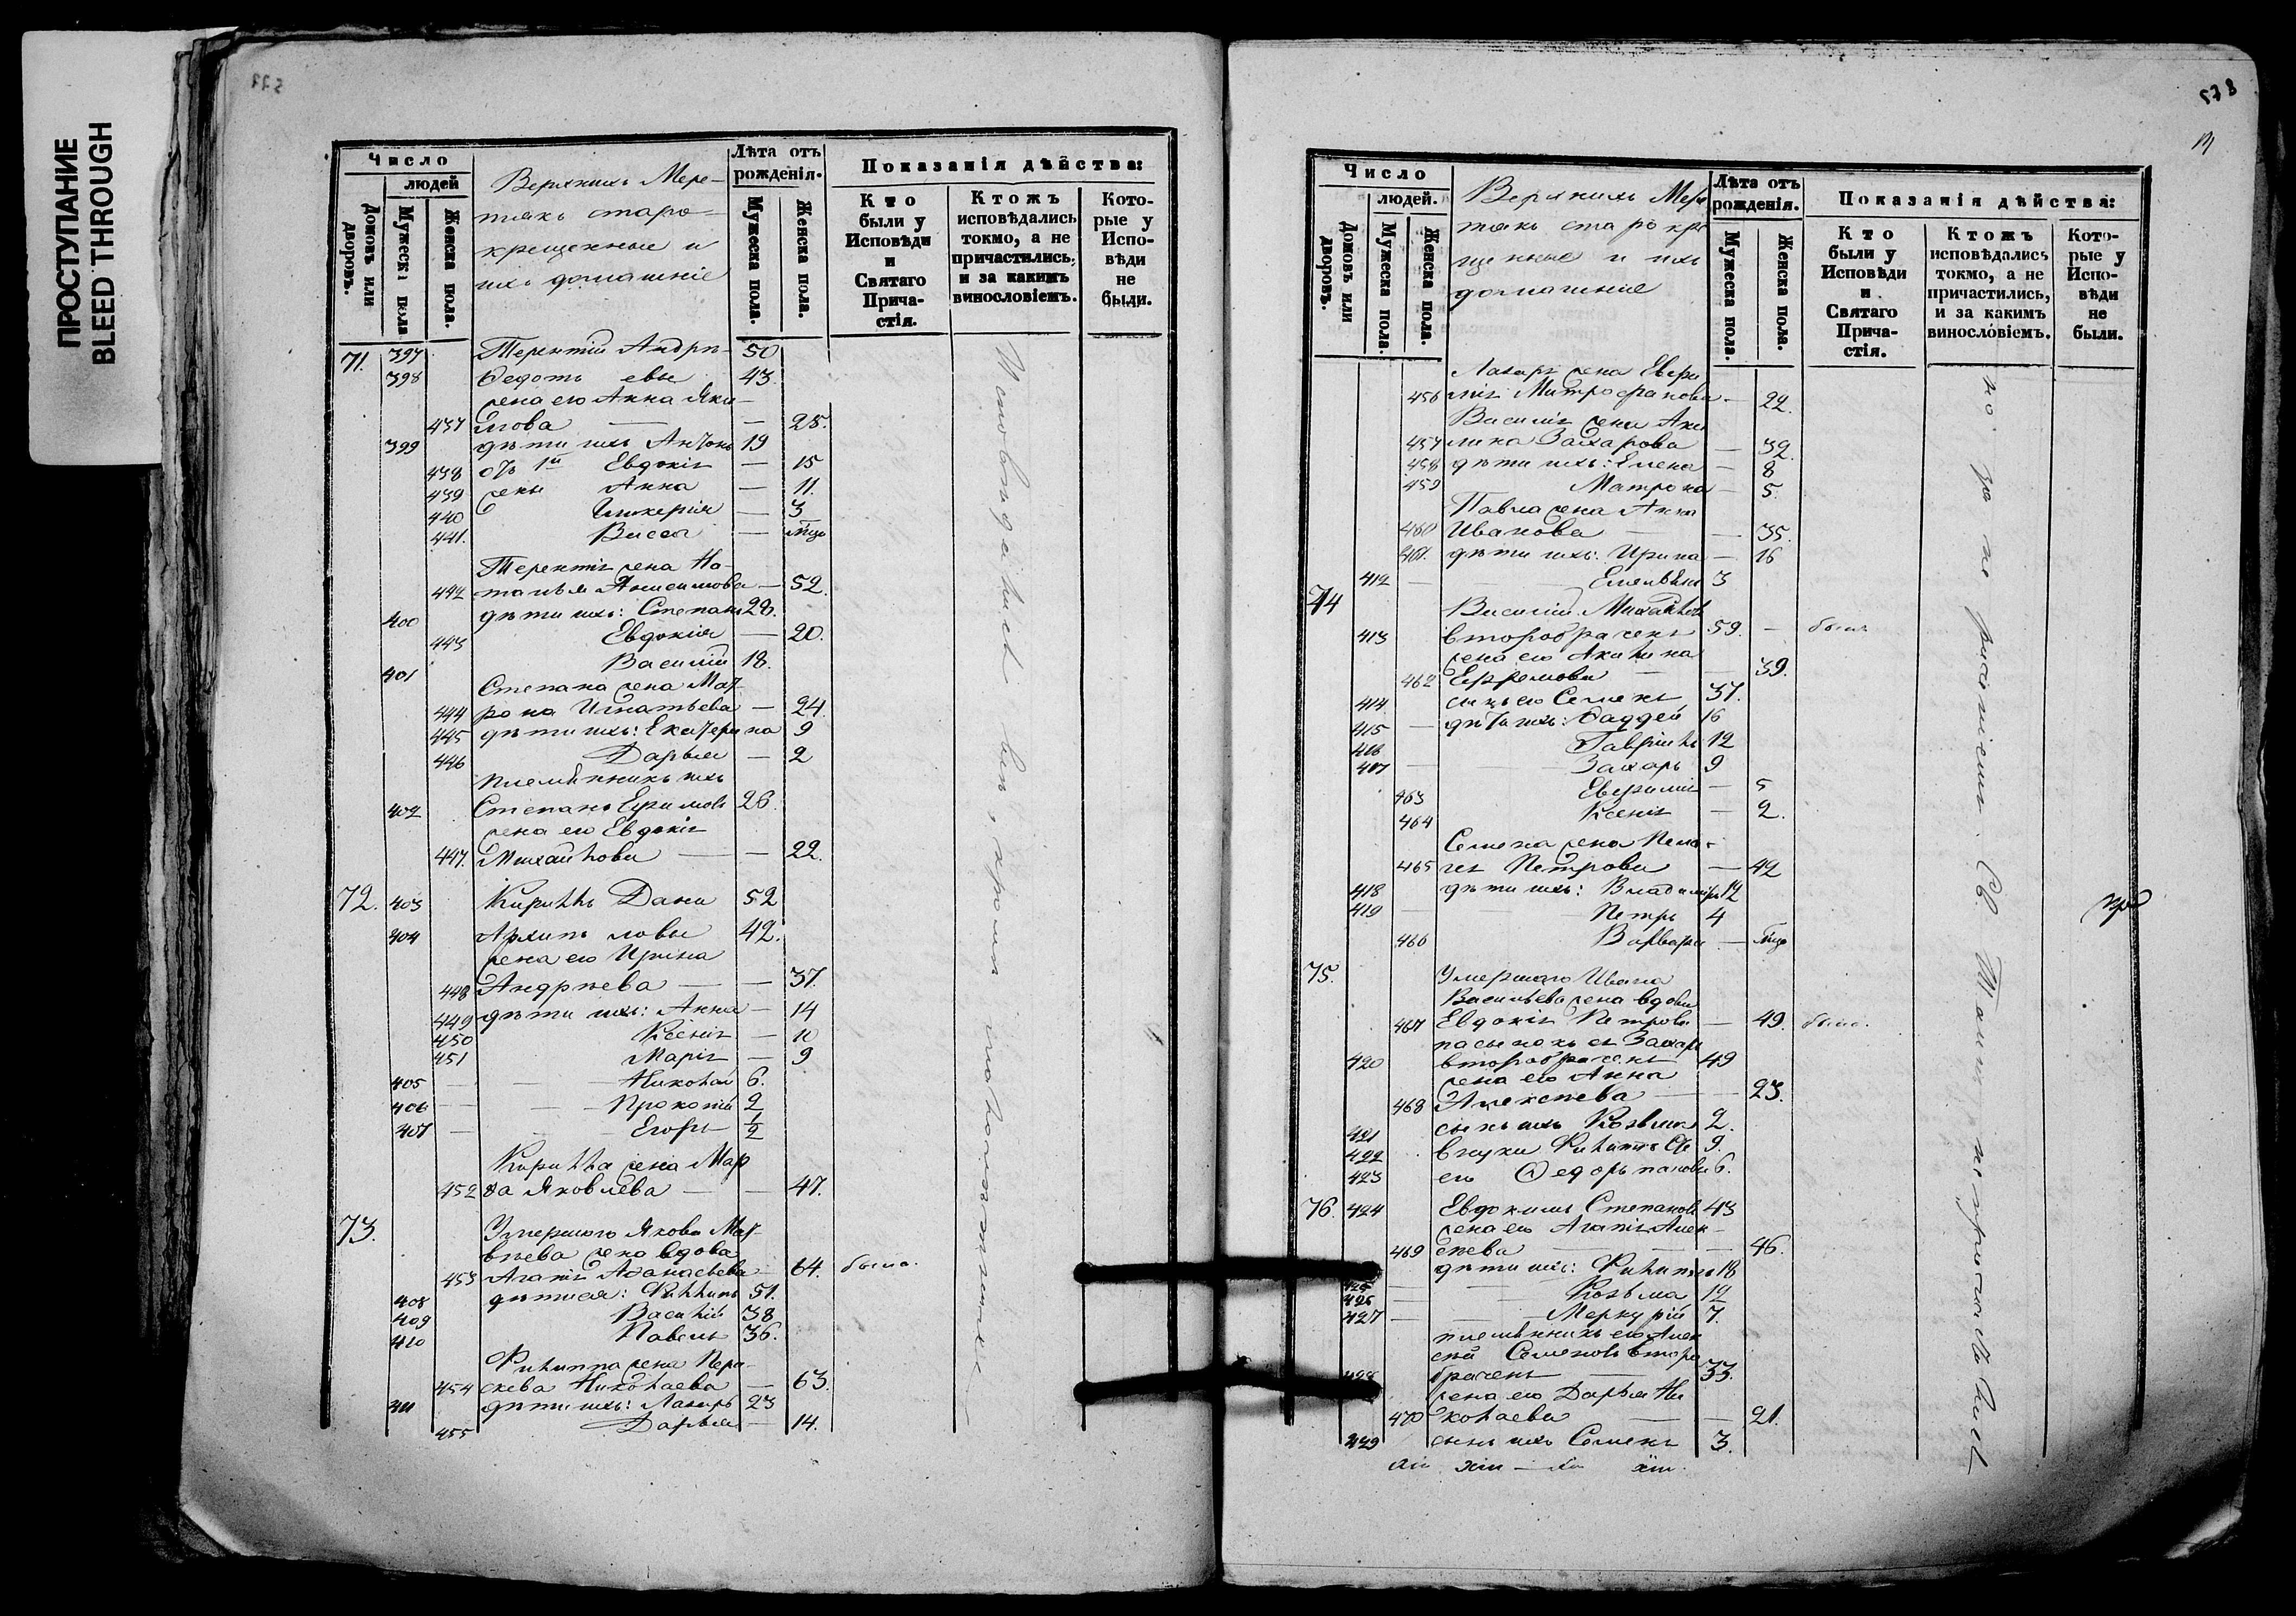 ПРОСТУПАНИЕ
BLEED THROUGH
577
Число
людей
Домовъ или дворовъ.
Мужеска пола
Женска пола.
Верхнихъ Мере-
тякъ старо-
крещенные и
ихъ домашніе
Лѣта отъ рожденія.
Мужеска пола.
Женска пола.
Показанія дѣйства:
Кто были у Исповѣди и Святаго Причастія.
Ктожъ исповѣдались токмо, а не причастились, и за какимъ винословіемъ.
Которые у Исповѣди не были.
71. 397 Терентій Андре- 50
398 Ѳедотъ евы 43
жена его Анна Яки-
437 мова — — 25.
399 дѣти ихъ Антонъ 19
438 отъ 1й Евдокія — 15
439 жены Анна — 11.
440 Гликерія — 3
441. Васса —
Терентія жена На-
442 талья Анисимова — 52.
400 дѣти ихъ: Степанъ 28.
443 Евдокія — 20.
401 Василій 18.
Степана жена Мат-
444 рона Игнатьева — 24
445 дѣти ихъ: Екатерина 9
446 Дарья — 2
племянникъ ихъ
402 Степанъ Ефимовъ 26.
жена его Евдокія
447. Михайлова — — 22.
72. 403 Кириллъ Дани 52
404 Архипъ ловы 42.
жена его Ирина
448 Андреева — — 37.
449 дѣти ихъ: Анна — 14
450 Ксенія — 10
451 Марія — 9
405 — — Николай 6.
406 — — Прокопій 2
407 — — Егоръ 1/2
Кирилла жена Мар
452 ѳа Яковлева — — 47.
73. Умершаго Якова Мат-
вѣева жена вдова
453 Агапія Аѳанасьева 64. была.
408 дѣти ея: Филиппъ 51.
409 Василій 38
410 Павелъ 36.
Филиппа жена Пара-
454 скева Николаева — 63.
411 дѣти ихъ: Лазарь 23
455 Дарья — 14.
Исповѣдались
578
Число
людей.
Домовъ или дворовъ.
Мужеска пола.
Женска пола.
Верхнихъ Мере
тякъ старокре
щенные и ихъ
домашніе
Лѣта отъ рожденія.
Мужеска пола.
Женска пола.
Показанія дѣйства:
Кто были у Исповѣди и Святаго Причастія.
Ктожъ исповѣдались токмо, а не причастились, и за какимъ винословіемъ.
Которые у Исповѣди не были.
Лазаря жена Евѳи
456 мія Митрофанова — 22.
Василія жена Аку
457 лина Захарова — 32.
458 дѣти ихъ: Елена — 8
459 Матрона — 5.
Павла жена Анна
460 Иванова — — 35.
461. дѣти ихъ: Ирина — 16
412 — — Емельянъ 3
74 Василій Михайловъ
413 второбраченъ 59. — былъ
жена его Акилина
462 Ефремова — — 39.
414 сынъ его Семенъ 37.
415 — дѣти ихъ: Ѳаддей 16
416 Гавріилъ 12
417 — — Захаръ 9
463 Евѳимія — 5
464 Ксенія — 2.
Семена жена Пела-
465 гея Петрова — 42
418 дѣти ихъ: Владиміръ 12
419 — — Петръ 4
466 Варвара —
75. Умершаго Ивана
Васильева жена вдова
467 Евдокія Петрова — 49. была.
пасынокъ ея Захаръ
420 второбраченъ 49
жена его Анна
468 Алексѣева — — 23.
421 сынъ ихъ Козьма 2.
422 внуки Филиппъ Сте 9.
423 его Ѳедоръ пановы 6.
76. 424 Евдокимъ Степановъ 43
жена его Агапія Алек-
469 сѣева — — 46.
425 дѣти ихъ: Филиппъ 18
426 — — Козьма 12
427 — — Меркурій 7.
племянникъ его Алек
сѣй Семеновъ второ
428 браченъ — 33.
жена его Дарья Ни
470 колаева — — 21.
429 сынъ ихъ Семенъ 3.
но не причастились Св. Таинъ